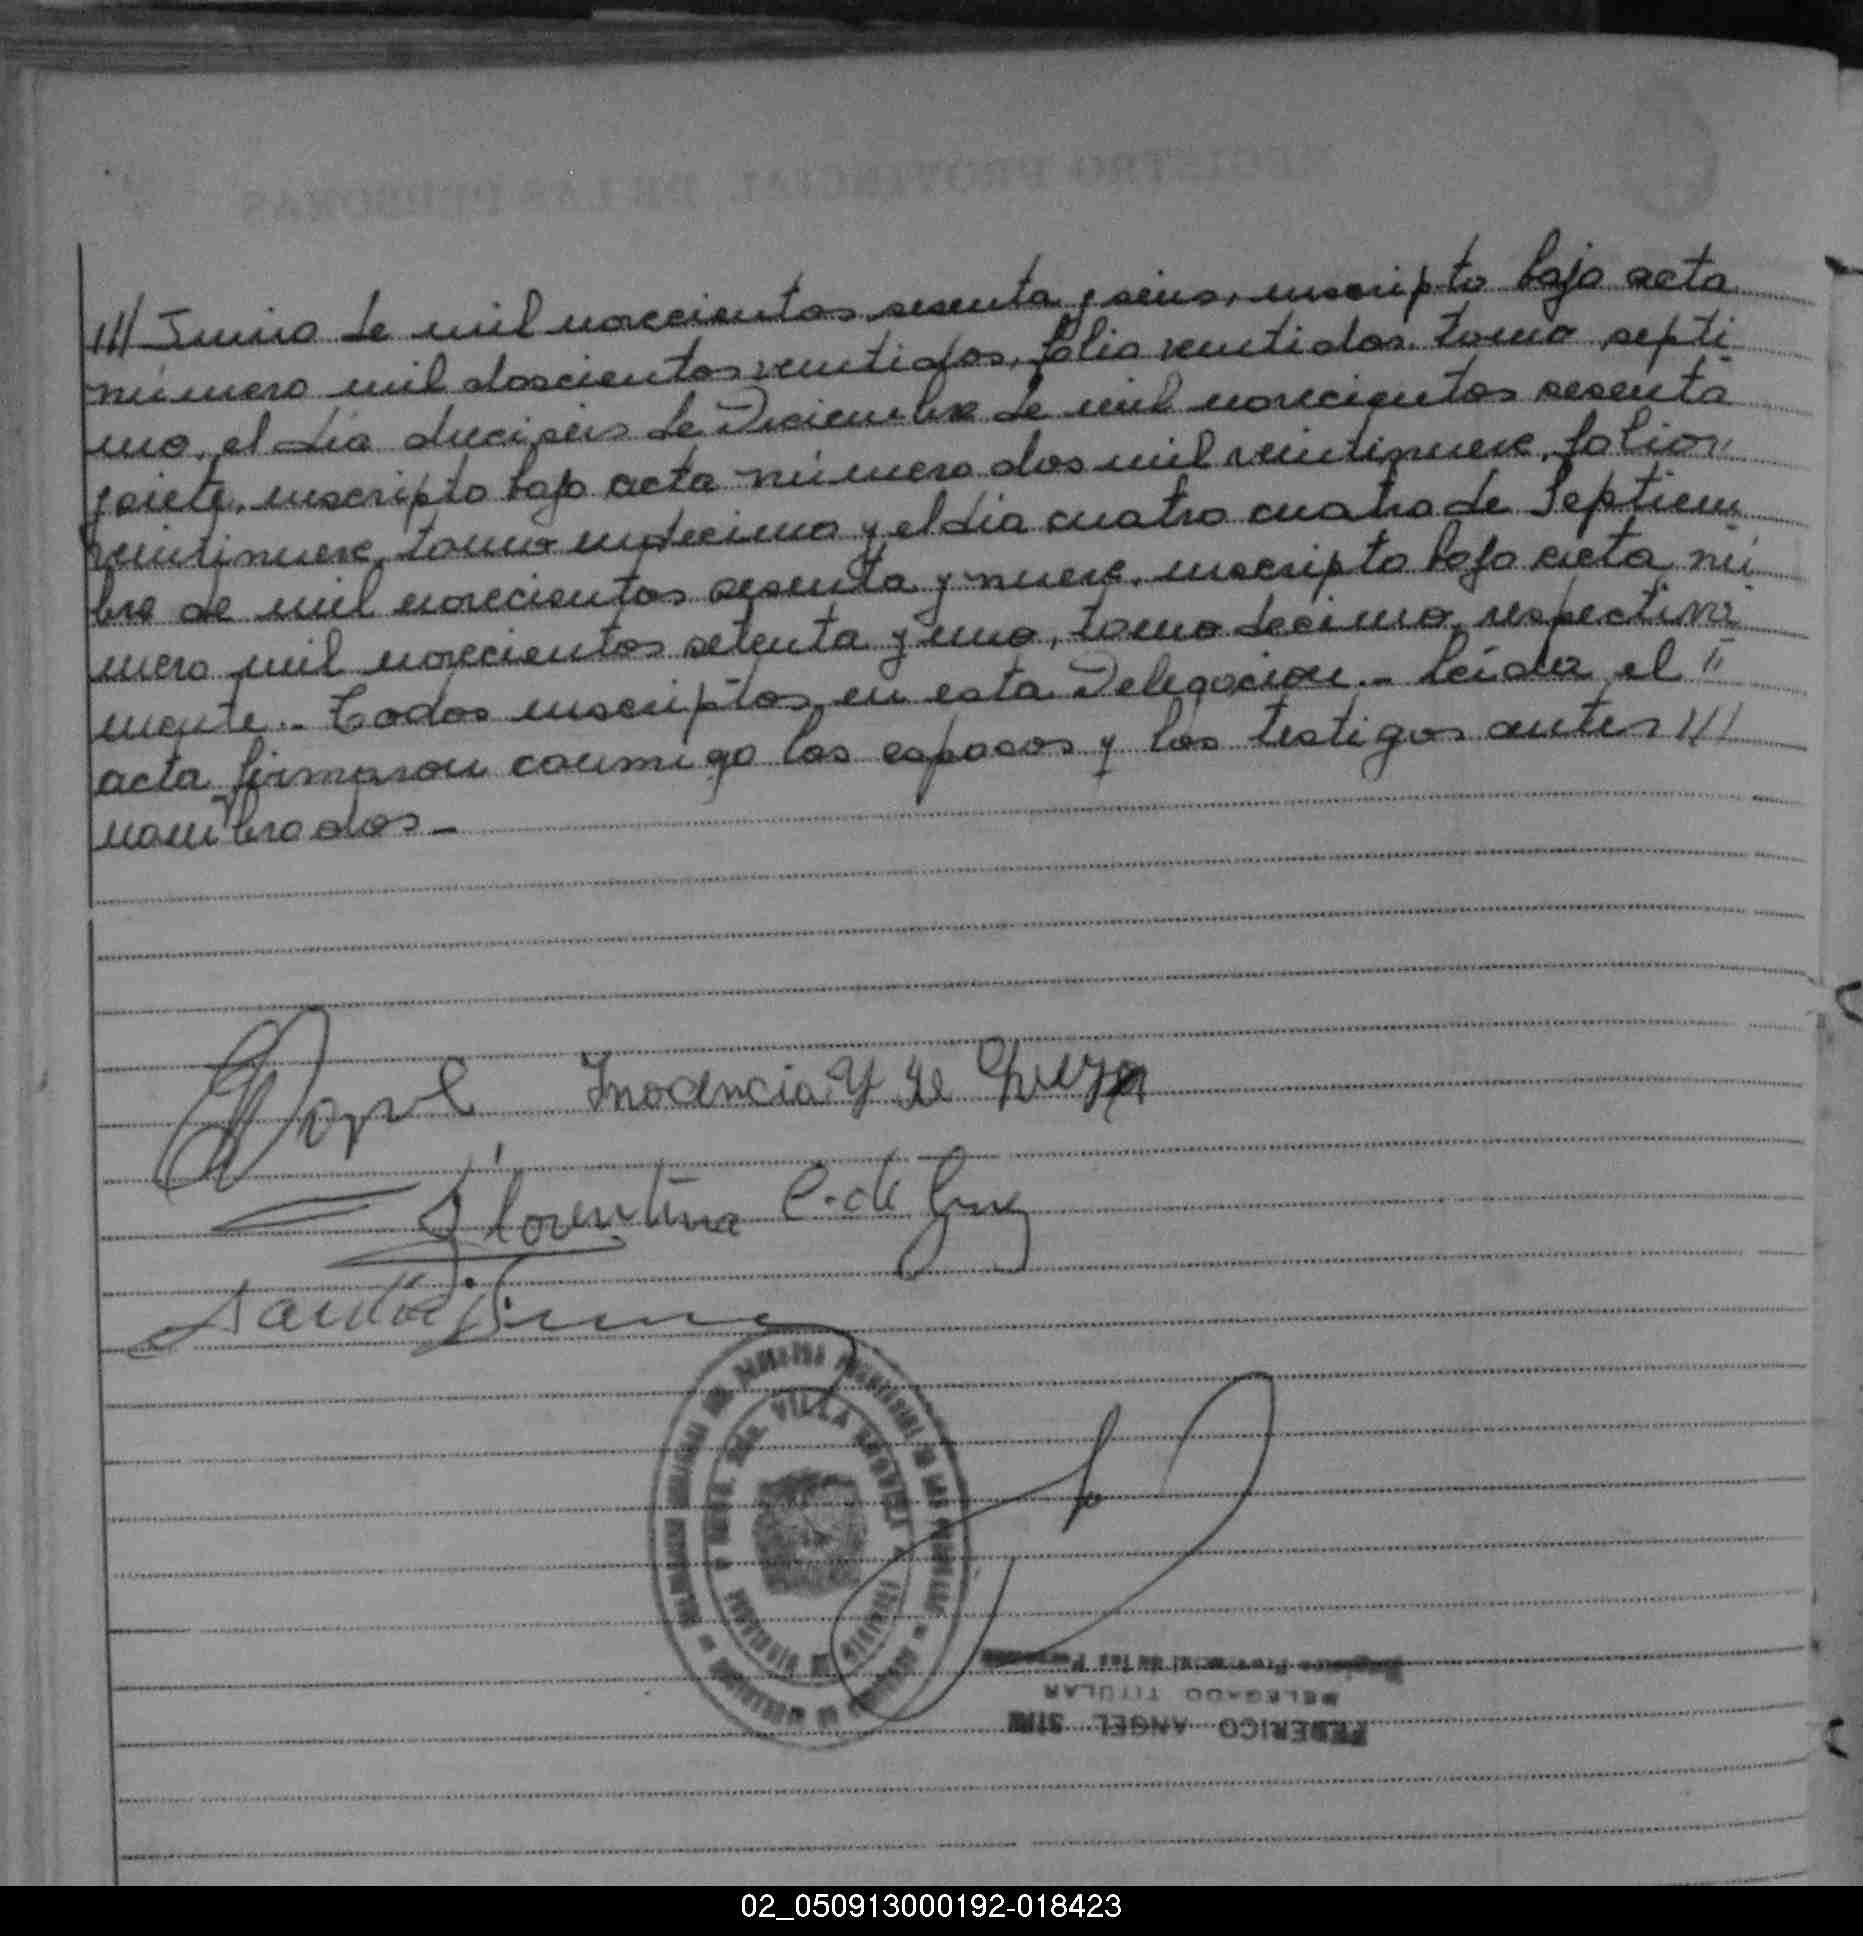 /// Junio de mil novecientos sesenta y seis, inscripto bajo acta
número mil doscientos ventidos, folio ventidos, tomo septi
mo, el día dieciseis de Diciembre de mil novecientos sesenta
y siete, inscripto bajo acta número dos mil veintinueve, folio
veintinueve, tomo undecimo y el día cuatro cuatro de Septiem
bre de mil novecientos sesenta y nueve, inscripto bajo acta nú
mero mil novecientos setenta y uno, tomo decimo, respectiva
mente.- Todos inscriptos en esta Delegacion.- Leida el
acta firmaron conmigo los esposos y los testigos antes ///
nombrados.-
Inocencia Y de
Florentina C. de
VILLA
Registro Provincial de las Personas
DELEGADO TITULAR
FEDERICO ANGEL
02_050913000192-018423